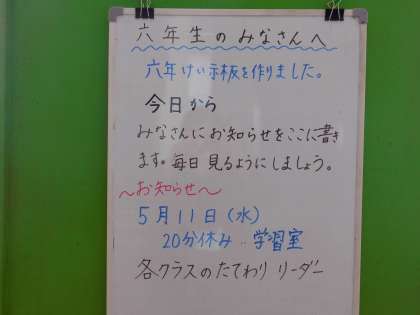 六年生のみなさんへ
六年けい示板を作りました。
今日から
みなさんにお知らせをここに書き
ます。毎日見るようにしましょう。
～お知らせ～
5月11日(水)
20分休み‥学習室
各クラスのたてわりリーダー